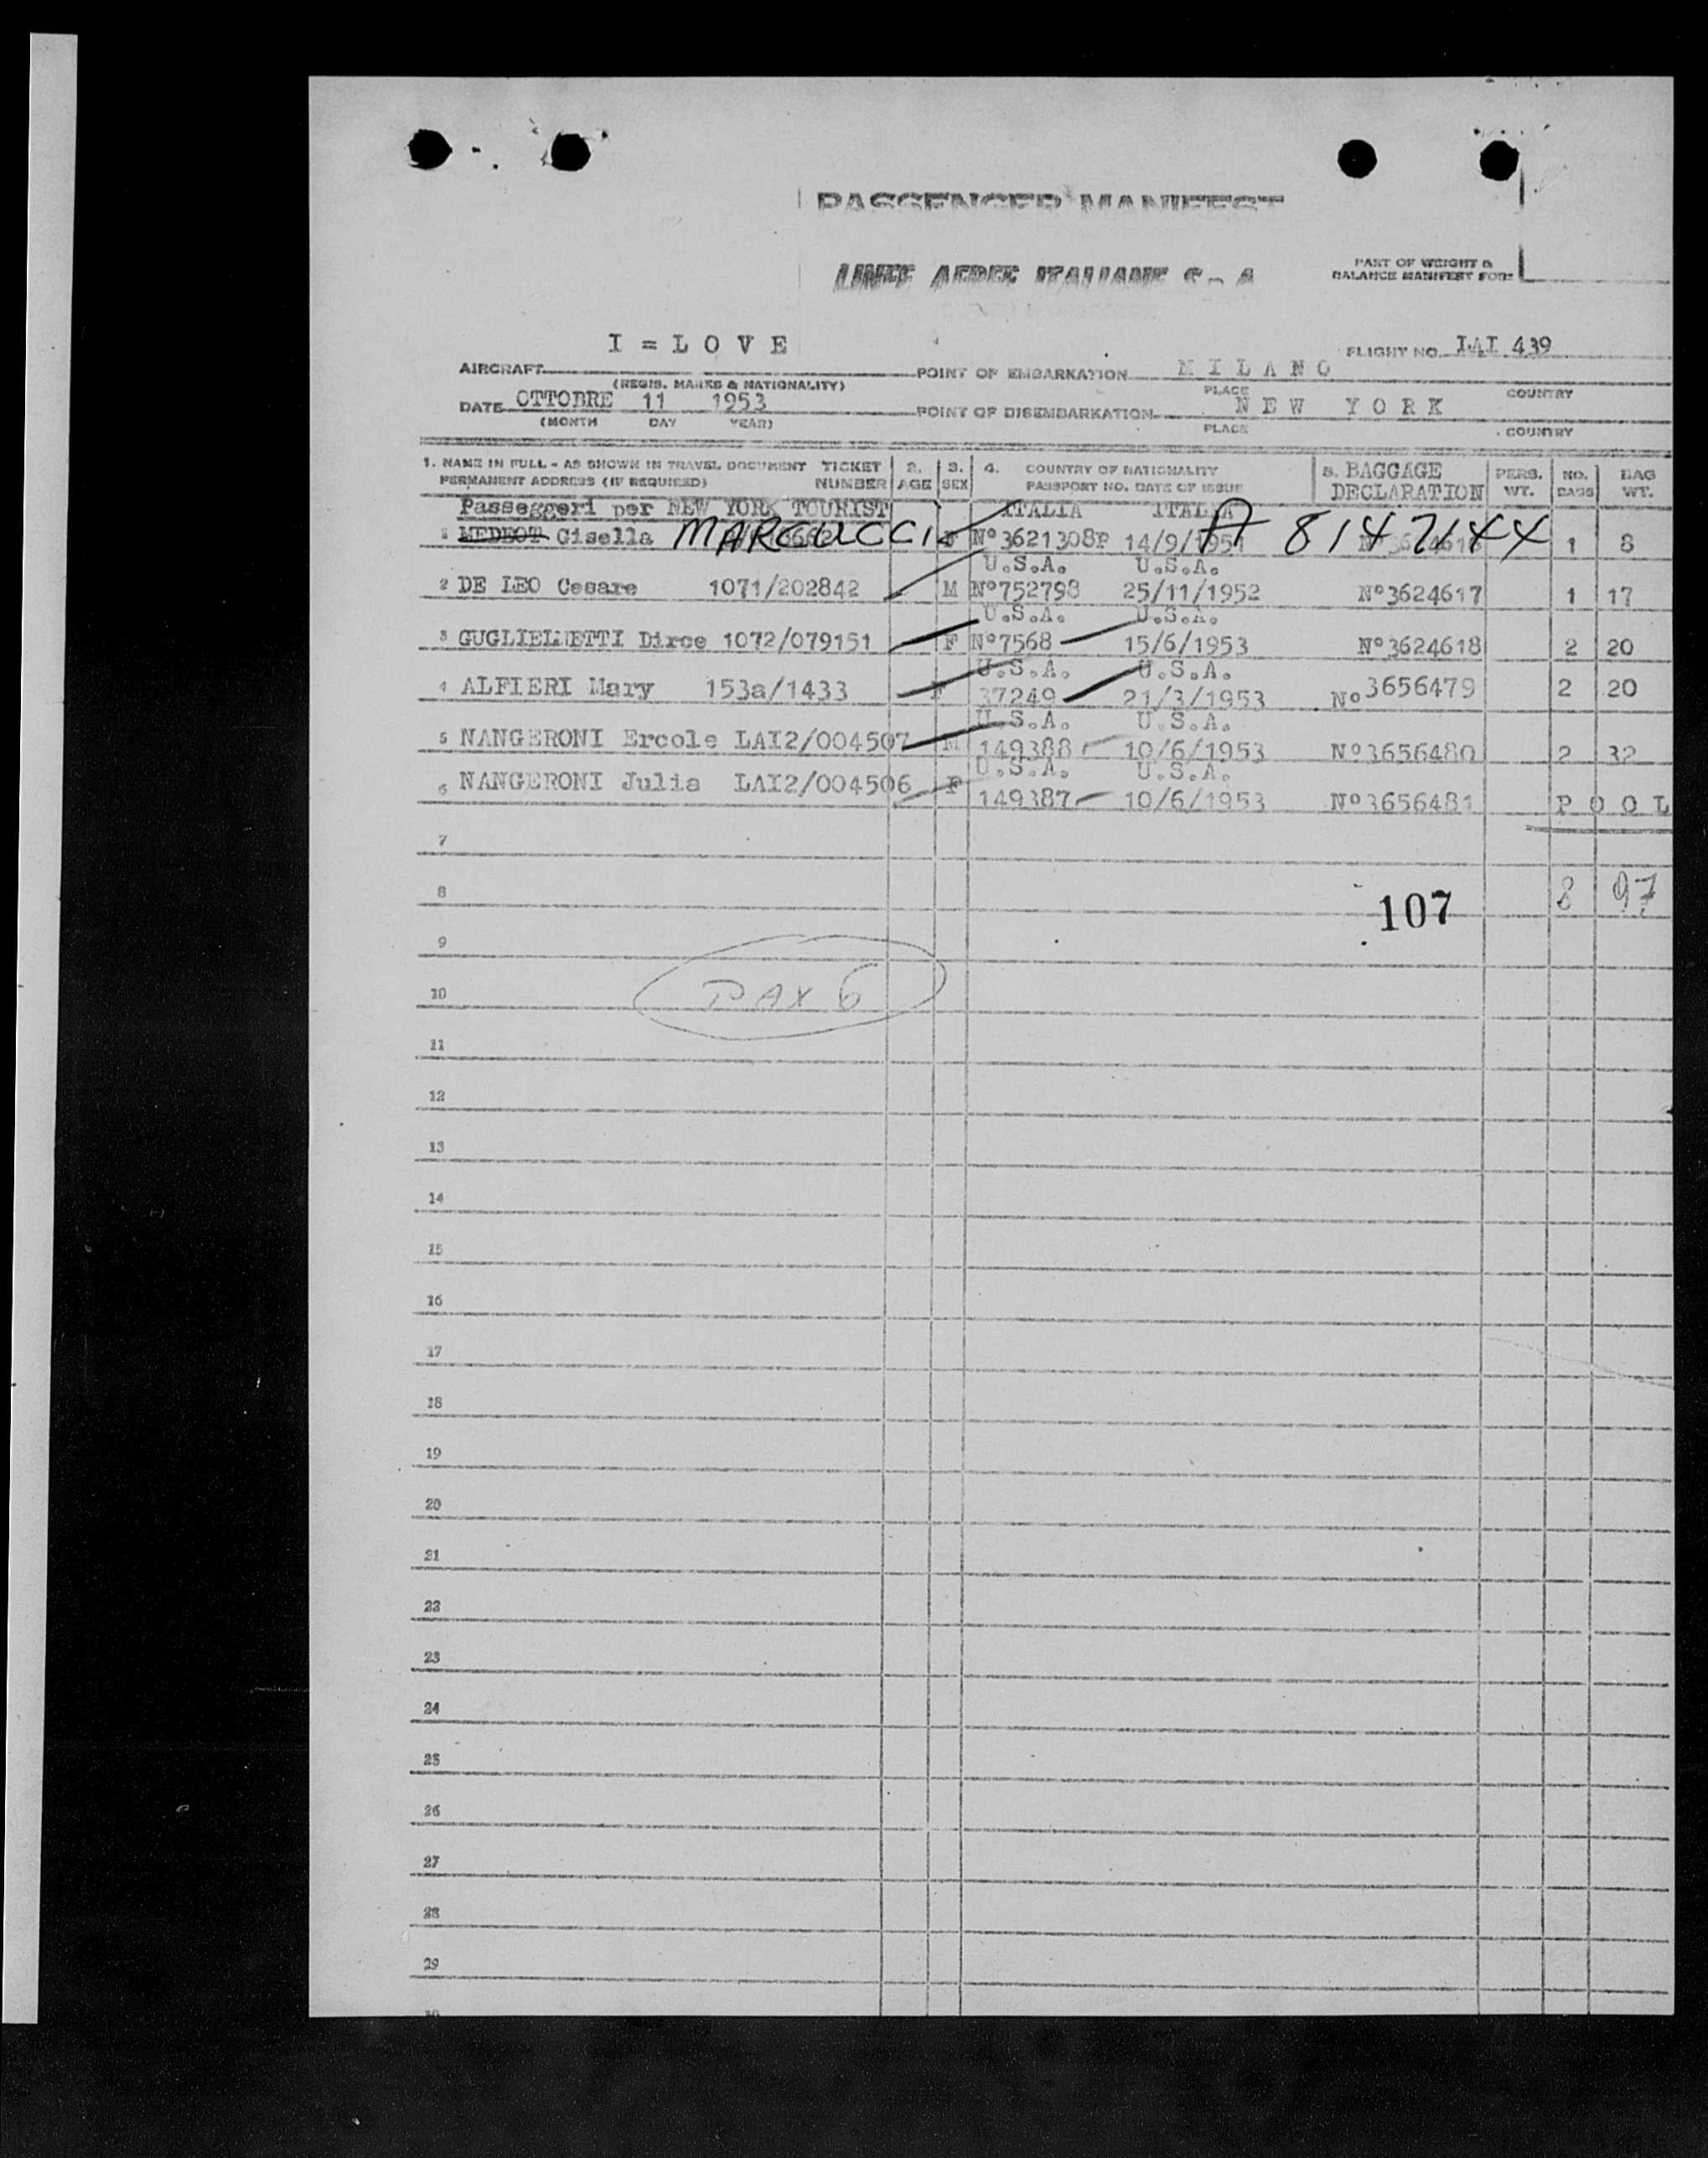 PASSENGER MANIFEST
LINEE AEREE ITALIANE S-A
PART OF WEIGHT &
BALANCE MANIFEST FOR:
I = L O V E
FLIGHT NO. LAI 439
AIRCRAFT
(REGIS. MARKS & NATIONALITY)
POINT OF EMBARKATION M I L A N O
PLACE COUNTRY
DATE OTTOBRE 11 1953
(MONTH DAY YEAR)
POINT OF DISEMBARKATION N E W Y O R K
PLACE COUNTRY
1. NAME IN FULL - AS SHOWN IN TRAVEL DOCUMENT TICKET 2. 3. 4. COUNTRY OF NATIONALITY 5. BAGGAGE PERS. NO. BAG
PERMANENT ADDRESS (IF REQUIRED) NUMBER AGE SEX PASSPORT NO. DATE OF ISSUE DECLARATION WT. BAGS WT.
Passeggeri per NEW YORK TOURIST ITALIA ITALIA
1 Gisella MARCUCCI Nº3621308P 14/9/1951 A 8147144 1 8
U.S.A. U.S.A.
2 DE LEO Cesare 1071/202842 M Nº752798 25/11/1952 Nº3624617 1 17
U.S.A. U.S.A.
3 GUGLIELMETTI Dirce 1072/079151 F Nº7568 15/6/1953 Nº3624618 2 20
U.S.A. U.S.A.
4 ALFIERI Mary 153a/1433 F 37249 21/3/1953 Nº3656479 2 20
U.S.A. U.S.A.
5 NANGERONI Ercole LAI2/004507 M 149388 10/6/1953 Nº3656480 2 32
U.S.A. U.S.A.
6 NANGERONI Julia LAI2/004506 F 149387 10/6/1953 Nº3656481 P O O L
7
8 107 8 97
9
10 PAX 6
11
12
13
14
15
16
17
18
19
20
21
22
23
24
25
26
27
28
29